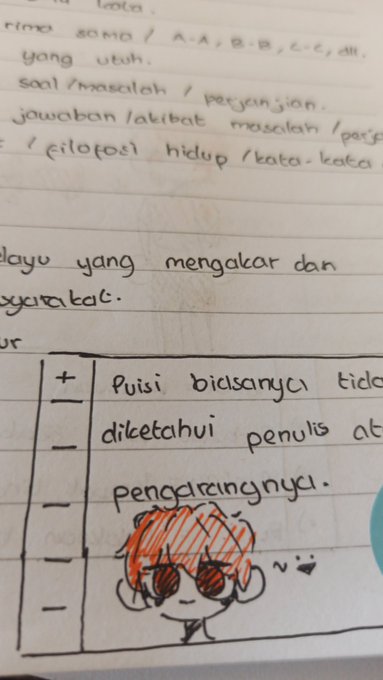 kata.
rima sama / A-A, B-B, C-C, dll.
yang utuh.
soal / masalah / perjanjian.
jawaban / akibat masalah / perj
/ filofosi hidup / kata-kata
layu yang mengakar dan
syarakat.
ur
+ Puisi biasanya tida
− diketahui penulis at
− pengarangnya.
−
−